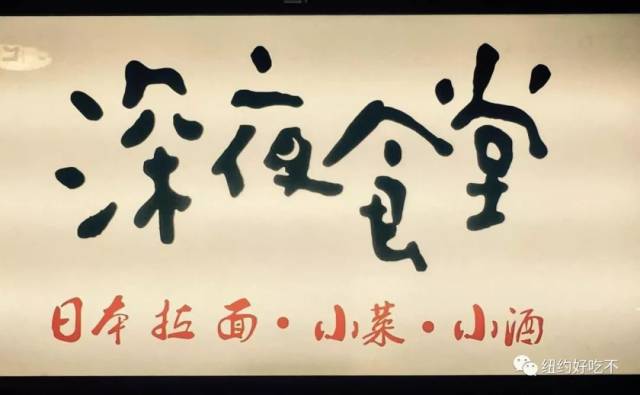 深夜食堂
日本拉面·小菜·小酒
纽约好吃不